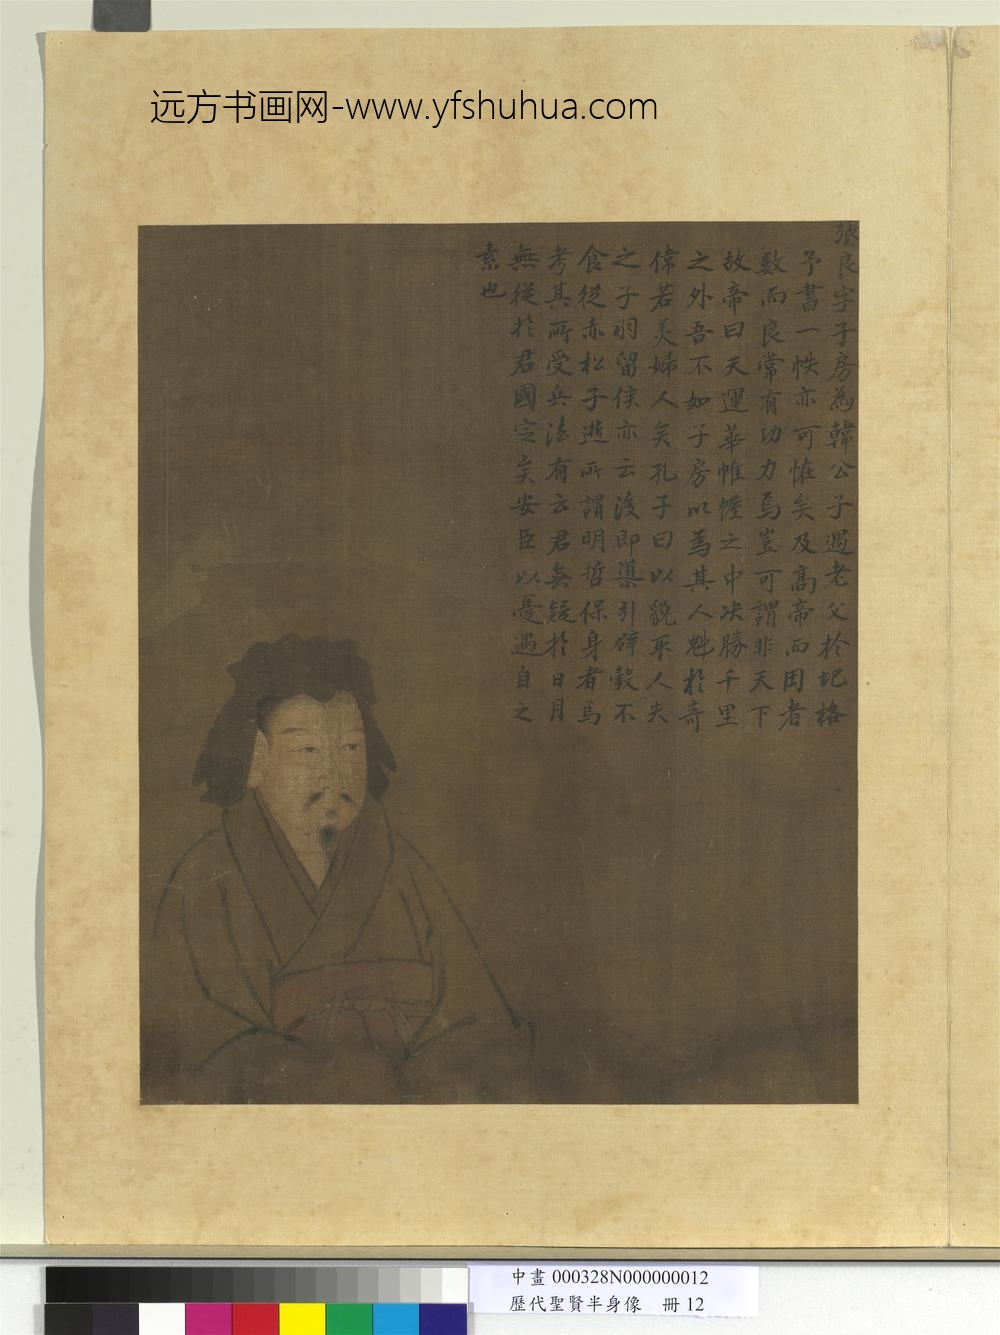 远方书画网-www.yfshuhua.com
張良字子房為韓公子遇老父於圮格
予書一帙亦可恠矣及高帝而田者
數而良常有功力焉豈可謂非天下
故帝曰天運華帷幄之中决勝千里
之外吾不如子房以為其人魁於奇
偉若美婦人矣孔子曰以貌取人失
之子羽留侯亦云後即導引辟穀不
食從赤松子逝所謂明哲保身者焉
考其所受兵法有云君無疑於日月
無從於君國定矣安臣以憂遇自之
素也
中畫 000328N000000012
歷代聖賢半身像 冊 12